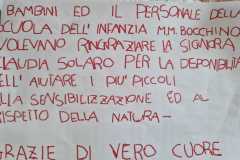 BAMBINI ED IL PERSONALE DELLA
SCUOLA DELL'INFANZIA M.M. BOCCHINO
VOLEVANO RINGRAZIARE LA SIGNORA
CLAUDIA SOLARO PER LA DEPONIBILITÀ
NELL'AIUTARE I PIU' PICCOLI
ALLA SENSIBILIZZAZIONE ED AL
RISPETTO DELLA NATURA-
GRAZIE DI VERO CUORE